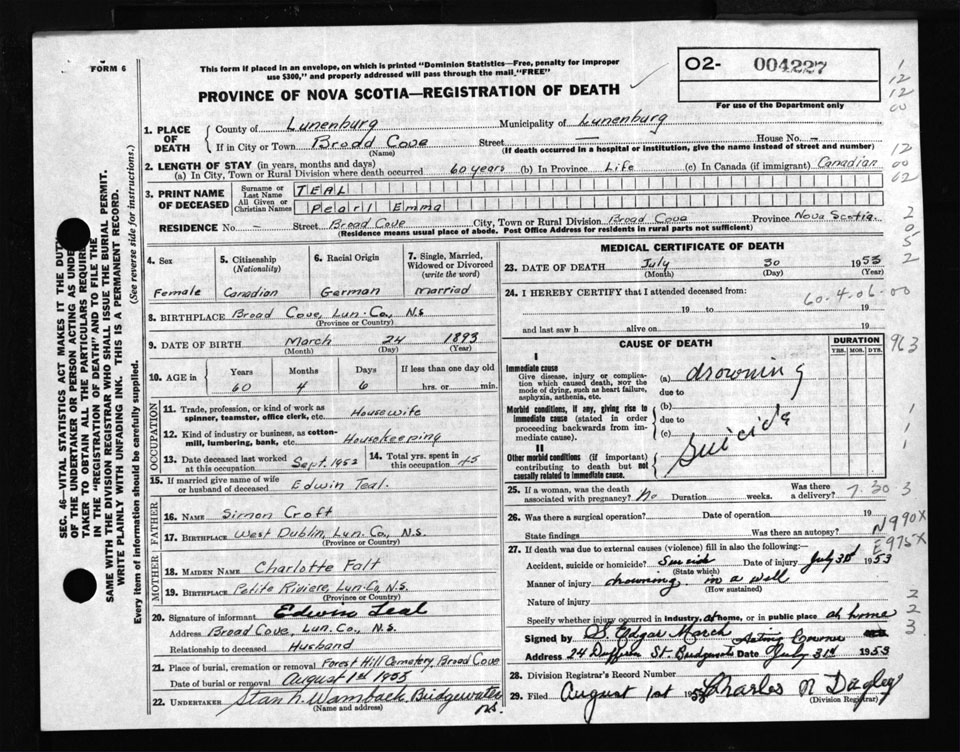 FORM 6
This form if placed in an envelope, on which is printed "Dominion Statistics—Free, penalty for improper
use $300," and properly addressed will pass through the mail "FREE"
PROVINCE OF NOVA SCOTIA—REGISTRATION OF DEATH
02- 004227
For use of the Department only
1. PLACE OF DEATH
County of Lunenburg Municipality of Lunenburg
If in City or Town Broad Cove Street — House No. –
(Name) (If death occurred in a hospital or institution, give the name instead of street and number)
2. LENGTH OF STAY (in years, months and days)
(a) In City, Town or Rural Division where death occurred 60 years (b) In Province Life (c) In Canada (if immigrant) Canadian
3. PRINT NAME OF DECEASED
Surname or Last Name TEAL
All Given or Christian Names Pearl Emma
RESIDENCE No. – Street Broad Cove City, Town or Rural Division Broad Cove Province Nova Scotia.
(Residence means usual place of abode. Post Office Address for residents in rural parts not sufficient)
4. Sex Female
5. Citizenship (Nationality) Canadian
6. Racial Origin German
7. Single, Married, Widowed or Divorced (write the word) Married
8. BIRTHPLACE Broad Cove, Lun. Co., N.S
(Province or Country)
9. DATE OF BIRTH March 24 1893
(Month) (Day) (Year)
10. AGE in Years Months Days If less than one day old
60 4 6 hrs. or min.
OCCUPATION
11. Trade, profession, or kind of work as spinner, teamster, office clerk, etc. Housewife
12. Kind of industry or business, as cotton-mill, lumbering, bank, etc. Housekeeping
13. Date deceased last worked at this occupation Sept. 1952
14. Total yrs. spent in this occupation 45
15. If married give name of wife or husband of deceased Edwin Teal.
FATHER
16. NAME Simon Croft
17. BIRTHPLACE West Dublin, Lun. Co., N.S.
(Province or Country)
MOTHER
18. MAIDEN NAME Charlotte Falt
19. BIRTHPLACE Petite Riviere, Lun. Co, N.S.
(Province or Country)
20. Signature of informant Edwin Teal
Address Broad Cove, Lun. Co., N.S.
Relationship to deceased Husband
21. Place of burial, cremation or removal Forest Hill Cemetery, Broad Cove
Date of burial or removal August 1st 1953
22. UNDERTAKER Stan h. Wamback. Bridgewater N.S.
(Name and address)
MEDICAL CERTIFICATE OF DEATH
23. DATE OF DEATH July 30 1953
(Month) (Day) (Year)
24. I HEREBY CERTIFY that I attended deceased from:
19 to 19
60-4-06-00
and last saw h alive on 19
CAUSE OF DEATH
DURATION
YRS. MOS. DYS.
I
Immediate cause
Give disease, injury or complication which caused death, NOT the mode of dying, such as heart failure, asphyxia, asthenia, etc.
(a) drowning
due to
Morbid conditions, if any, giving rise to immediate cause (stated in order proceeding backwards from immediate cause).
(b)
due to
(c)
Suicide
II
Other morbid conditions (if important) contributing to death but not causally related to immediate cause.
25. If a woman, was the death associated with pregnancy? No Duration weeks. Was there a delivery?
7-30-3
26. Was there a surgical operation? Date of operation 19
State findings Was there an autopsy?
N990X
E975X
27. If death was due to external causes (violence) fill in also the following:—
Accident, suicide or homicide? Suicide Date of injury July 30 1953
(State which)
Manner of injury drowning in a well
(How sustained)
Nature of injury
Specify whether injury occurred in industry, at home, or in public place at home
Signed by S. Edgar March Acting Coroner
Address 24 Dufferin St. Bridgewater Date July 31st 1953
28. Division Registrar's Record Number
29. Filed August 1st 1953 Charles N Dagley
(Division Registrar)
1
12
12
00
12
00
02
2
0
5
2
963
1
1
1
2
2
3
SEC. 46—VITAL STATISTICS ACT MAKES IT THE DUTY
OF THE UNDERTAKER OR PERSON ACTING AS UNDER-
TAKER TO OBTAIN ALL THE PARTICULARS REQUIRED
IN THE "REGISTRATION OF DEATH" AND TO FILE THE
SAME WITH THE DIVISION REGISTRAR WHO SHALL ISSUE THE BURIAL PERMIT.
WRITE PLAINLY WITH UNFADING INK. THIS IS A PERMANENT RECORD.
Every item of information should be carefully supplied. (See reverse side for instructions.)